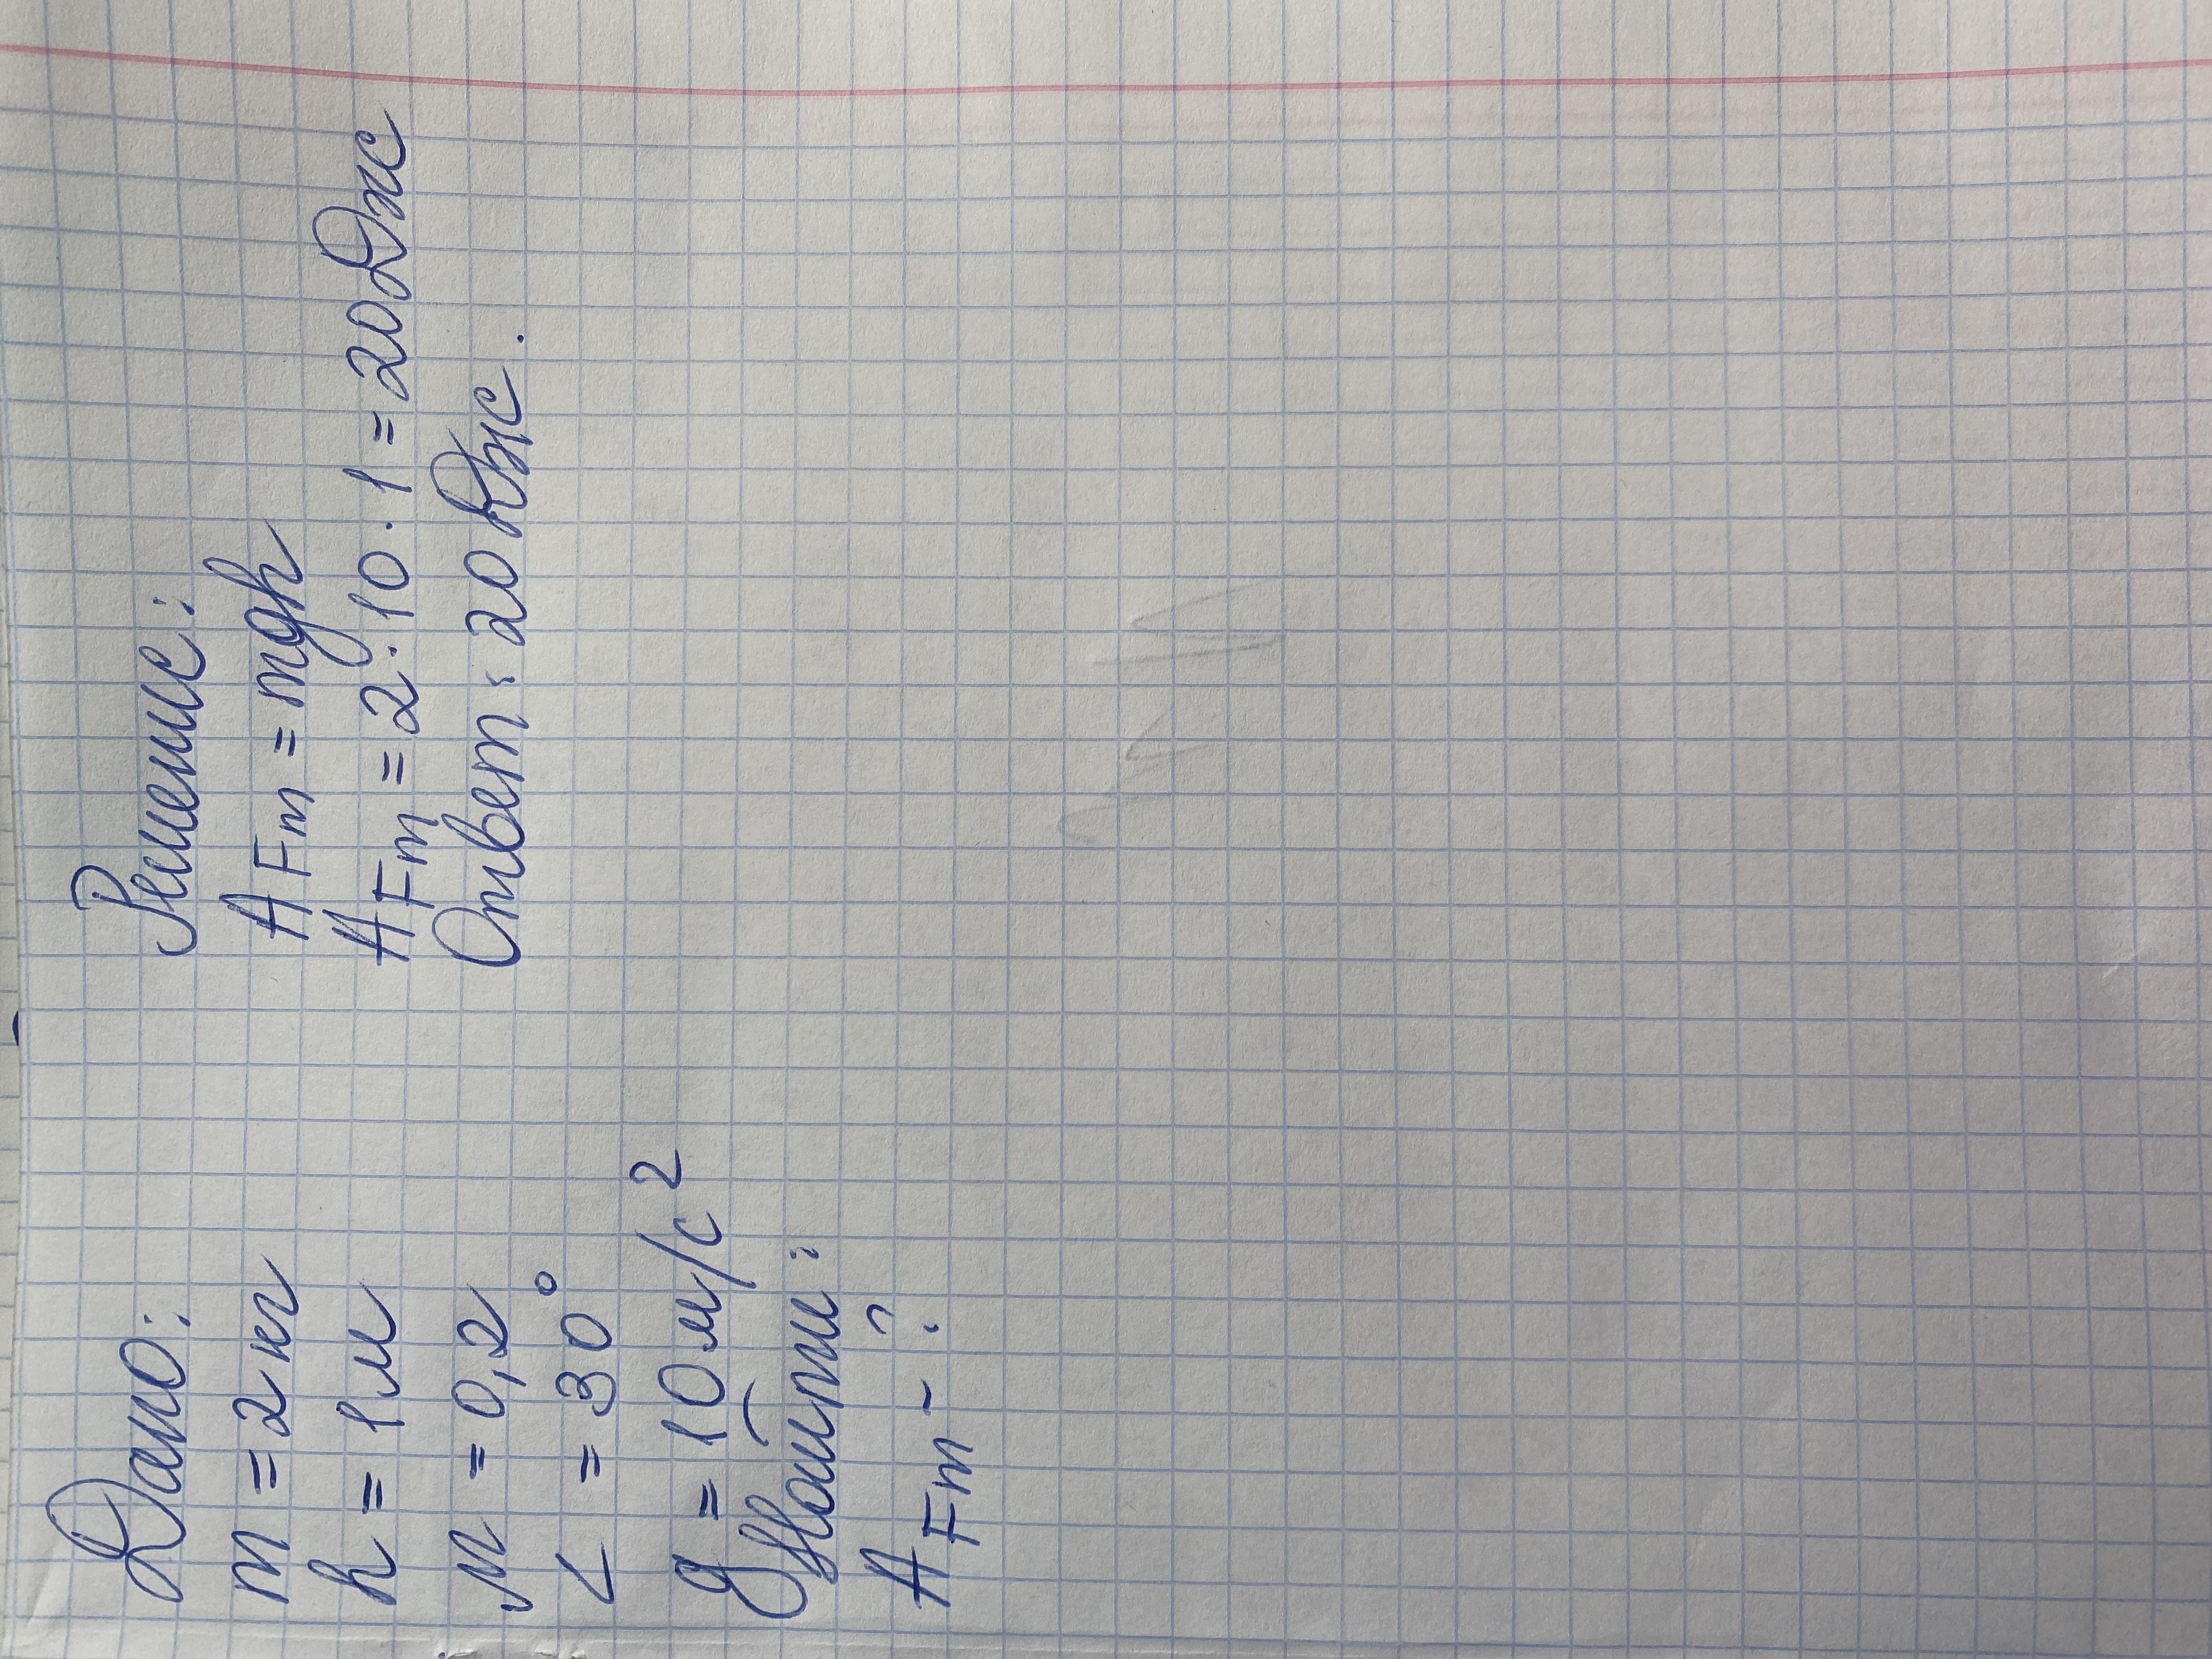 Дано:
m = 2 кг
h = 1 м
μ = 0,2
∠ = 30°
g = 10 м/с²
Найти:
A Fт - ?
Решение:
A Fт = mgh
A Fт = 2·10·1 = 20 Дж
Ответ: 20 Дж.